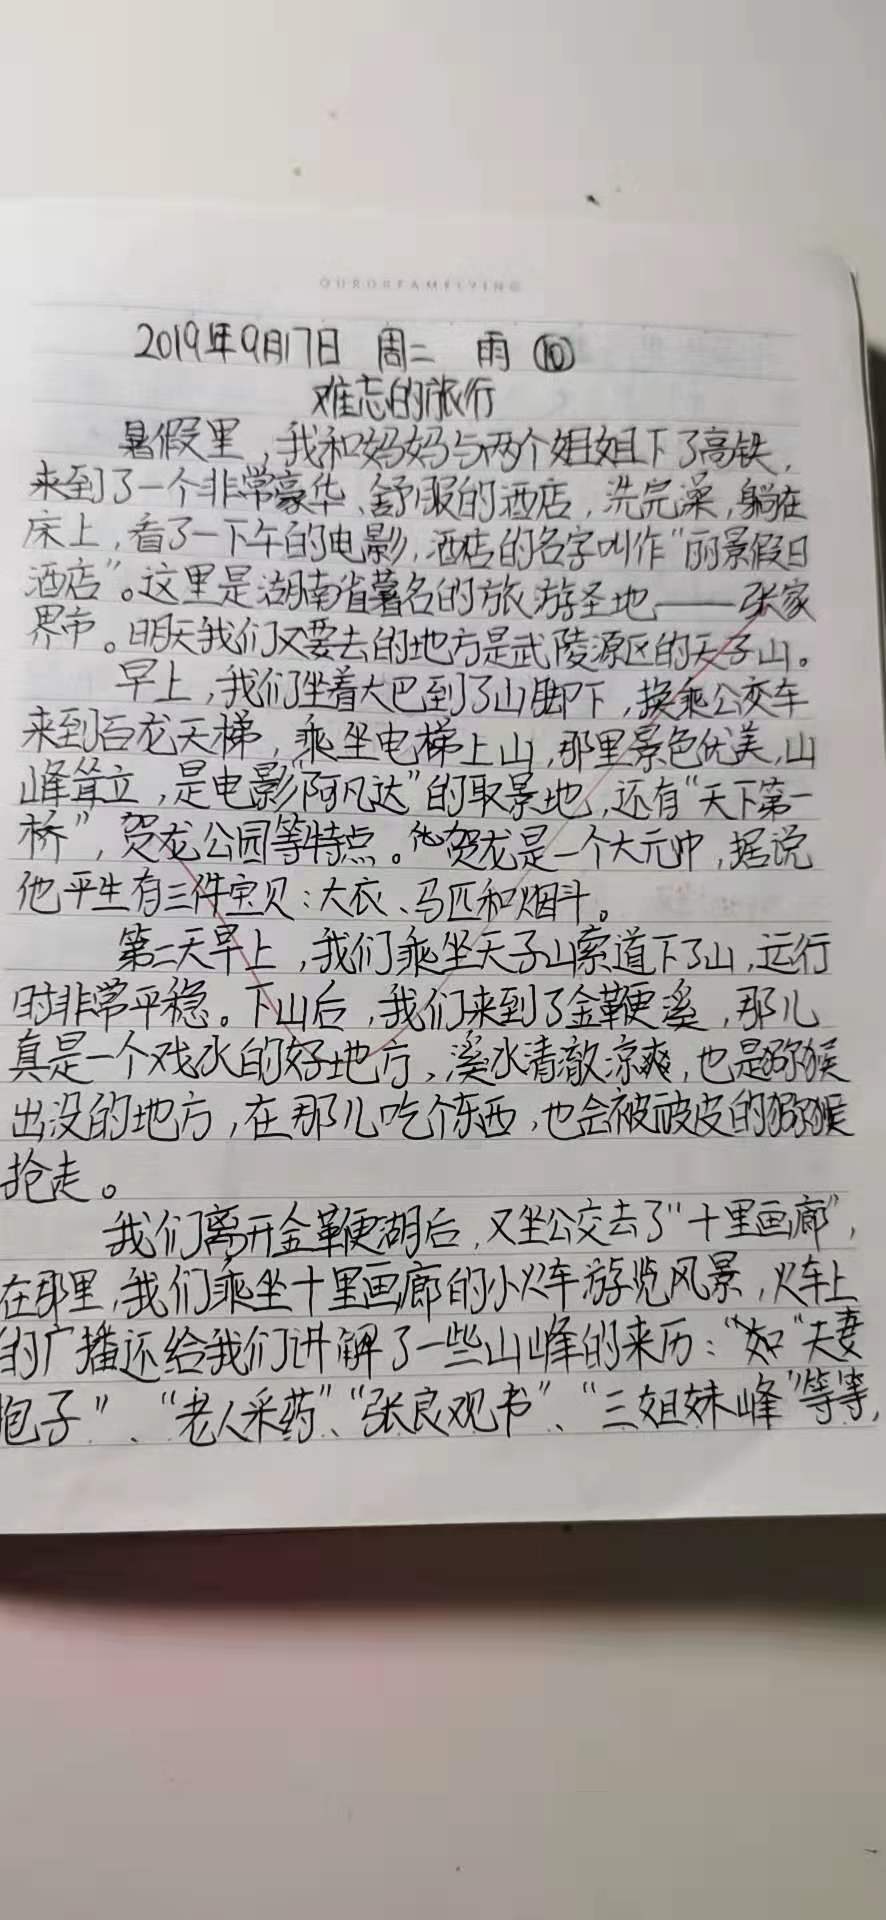 OURDREAMFLYING
2019年9月17日 周二 雨 ⑩
难忘的旅行
暑假里，我和妈妈与两个姐姐下了高铁，
来到了一个非常豪华、舒服的酒店，洗完澡，躺在
床上，看了一下午的电影，酒店的名字叫作“丽景假日
酒店”。这里是湖南省著名的旅游圣地——张家
界市。明天我们又要去的地方是武陵源区的天子山。
早上，我们坐着大巴到了山脚下，换乘公交车
来到百龙天梯，乘坐电梯上山，那里景色优美，山
峰耸立，是电影“阿凡达”的取景地，还有“天下第一
桥”，贺龙公园等特点。他贺龙是一个大元帅，据说
他平生有三件宝贝：大衣、马匹和烟斗。
第二天早上，我们乘坐天子山索道下了山，运行
时非常平稳。下山后，我们来到了金鞭溪，那儿
真是一个戏水的好地方，溪水清澈凉爽，也是猕猴
出没的地方，在那儿吃个东西，也会被顽皮的猕猴
抢走。
我们离开金鞭湖后，又坐公交去了“十里画廊”，
在那里，我们乘坐十里画廊的小火车游览风景，火车上
的广播还给我们讲解了一些山峰的来历：“如“夫妻
抱子”、“老人采药”、“张良观书”、“三姐妹峰”等等，